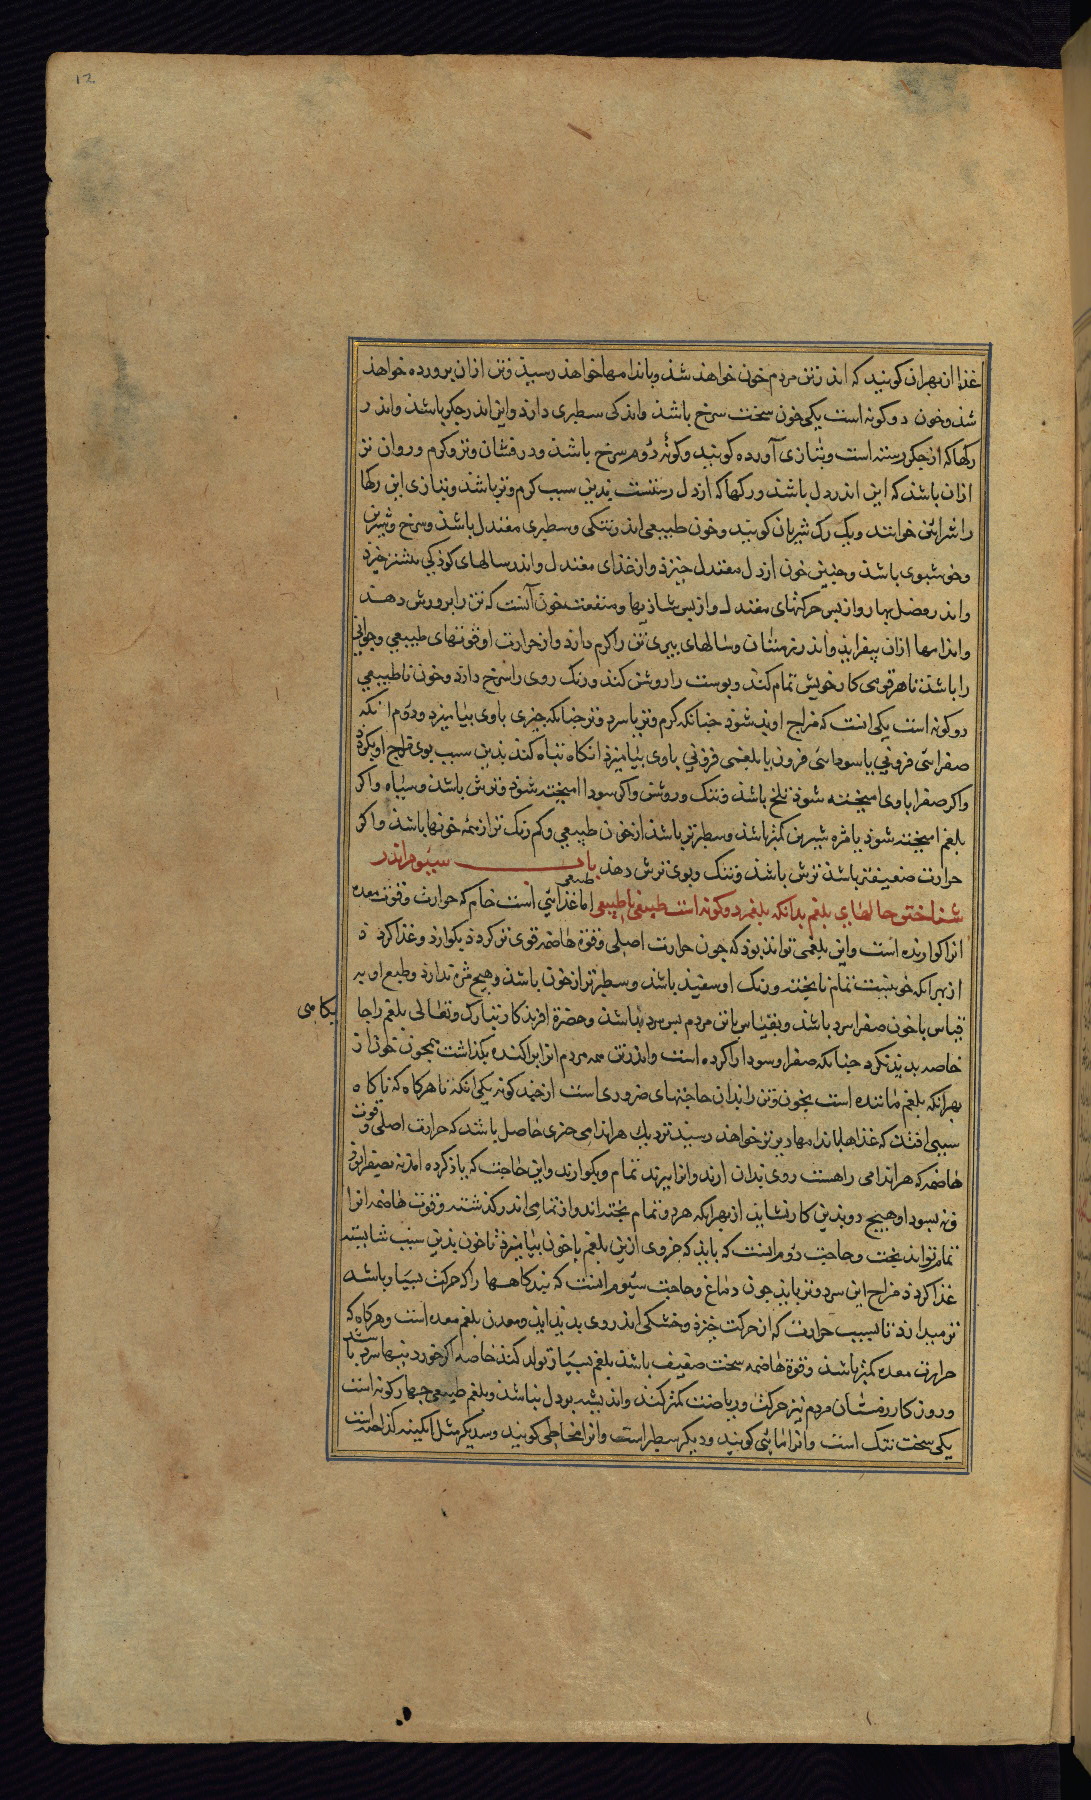 12
غذا از بهر ان كویند كه اندر تن مردم خون خواهذ شذ و باندامها خواهذ رسیذ و تن ازان پرورده خواهذ
شذ و خون دو كونه است یكی خون سخت سرخ باشذ و اندكی سطبری دارد و این اندر جكر باشذ و اندر
ركها كه از جكر رسته است و بتازی آورده كویند و كونهٔ دوم سرخ باشذ و درفشان و تر و كرم و روان تر
ازان باشذ كه این اندر دل باشذ و ركها كه از دل رستست بدین سبب كرم و تر باشذ و بتازی این ركها
را شرائین خوانند و یك رك شریان كویند و خون طبیعی اندر تنكی و سطبری معتدل باشذ و سرخ و شیرین
و خوشبوی باشذ و چنین خون از دل معتدل خیزذ و از غذای معتدل و اندر سالهای كوذكی بیشتر خیزد
و اندر فصل بهار و از پس حركتهای معتدل و از پس شاذیها و منفعت خون آنست كه تن را پرورش دهذ
و اندامها ازان بیفزاید و اندر زمستان و سالهای پیری تن را كرم دارد و از حرارت او قوتهای طبیعی و حیوانی
را باشذ تا هر قوتی كار خویش تمام كند و پوست را روشن كند و رنك روی را سرخ دارد و خون ناطبیعی
دو كونه است یكی انست كه مزاج او بذ شوذ چنانكه كرم و تر یا سرد و تر چنانكه چیزی با وی بیامیزد و دوم انكه
صفرائی فزونی یا سودائی فزون یا بلغمی فزونی با وی بیامیزد انكاه تباه كند بدین سبب بوی و مزاج او بكردد
و اكر صفرا با وی امیخته شوذ تلخ باشذ و تنك و روشن و اكر سودا امیخته شوذ و ترش باشذ و سیاه و اكر
بلغم امیخته شوذ با مزه شیرین كمتر باشذ و سطبرتر باشذ از خون طبیعی و كم رنك تر از همه خونها باشذ و اكر
حرارت ضعیفتر باشذ ترش باشذ و تنك و بوی ترش دهذ باب سیوم اندر
شناختن حالهای بلغم بدانكه بلغم دو كونه است طبیعی و ناطبیعی اما طبیعی غذائی است خام كه حرارت و قوت معده
انرا كوارنده است و این بلغمی تواند بوذ كه چون حرارت اصلی و قوة هاضمه قوی تر كردد بكوارد و غذا كردد
از بهر انكه خونیست تمام نا پخته و رنك او سفید باشذ و سطبرتر از خون باشذ و هیچ مزه ندارد و طبع او به
قیاس با خون و صفرا سرد باشذ و بقیاس با تن مردم بس سرد نباشذ و حضرة افریذكار تبارك و تعالی بلغم را جا
یكامی
خاصه پدید نكرد چنانكه صفرا و سودا را كرده است و اندر تن همه مردم انرا پراكنده بكذاشت همچون خون از
بهر انكه بلغم ماننده است بخون و تن را بدان حاجتهای ضروری است از چند كونه یكی انكه تا هر كاه كه ناكاه
سببی افتد كه غذاها باندامها دیرتر خواهد رسید نزدیك هر اندامی چیزی حاصل باشد كه حرارت اصلی و قوت
هاضمه كه هر اندامی راهست روی بدان ارند و انرا ببزند تمام و بكوارند و این حاجت كه یاذ كرده امد نه بصفرا بود
و نه بسودا و هیچ دو بدین كار نشاید از بهر انكه هر دو تمام پخته اند و از تمامی اندر كذشته و قوت هاضمه انرا
تمام تواند پخت و حاجت دوم انست كه باید كه جزوی ازین بلغم با خون بیامیزذ تا خون بذین سبب شایسته
غذا كردد مزاج این سرد و تر باید چون دماغ و حاجت سیوم انست كه بندكاهها را كه حركت بسیار باشد
تر میدارد تا بسبب حرارت كه از حركت خیزذ و خشكی اندر وی بدید نیاید و معدن بلغم معده است و هر كاه كه
حرارت معده كمتر باشذ و قوة هاضمه سخت ضعیف باشذ بلغم بسیار تولد كند خاصه اكر خوردنیها سرد باشد
و روزكار زمستان مردم نیز حركت و ریاضت كمتر كند و اندیشه بر دل نباشذ و بلغم طبیعی چهار كونه است
یكی سخت تنك است و انرا مائی كویند و دیكر سطبر است و انرا مخاطی كویند و سدیكر مثل ابكینه كداخته است